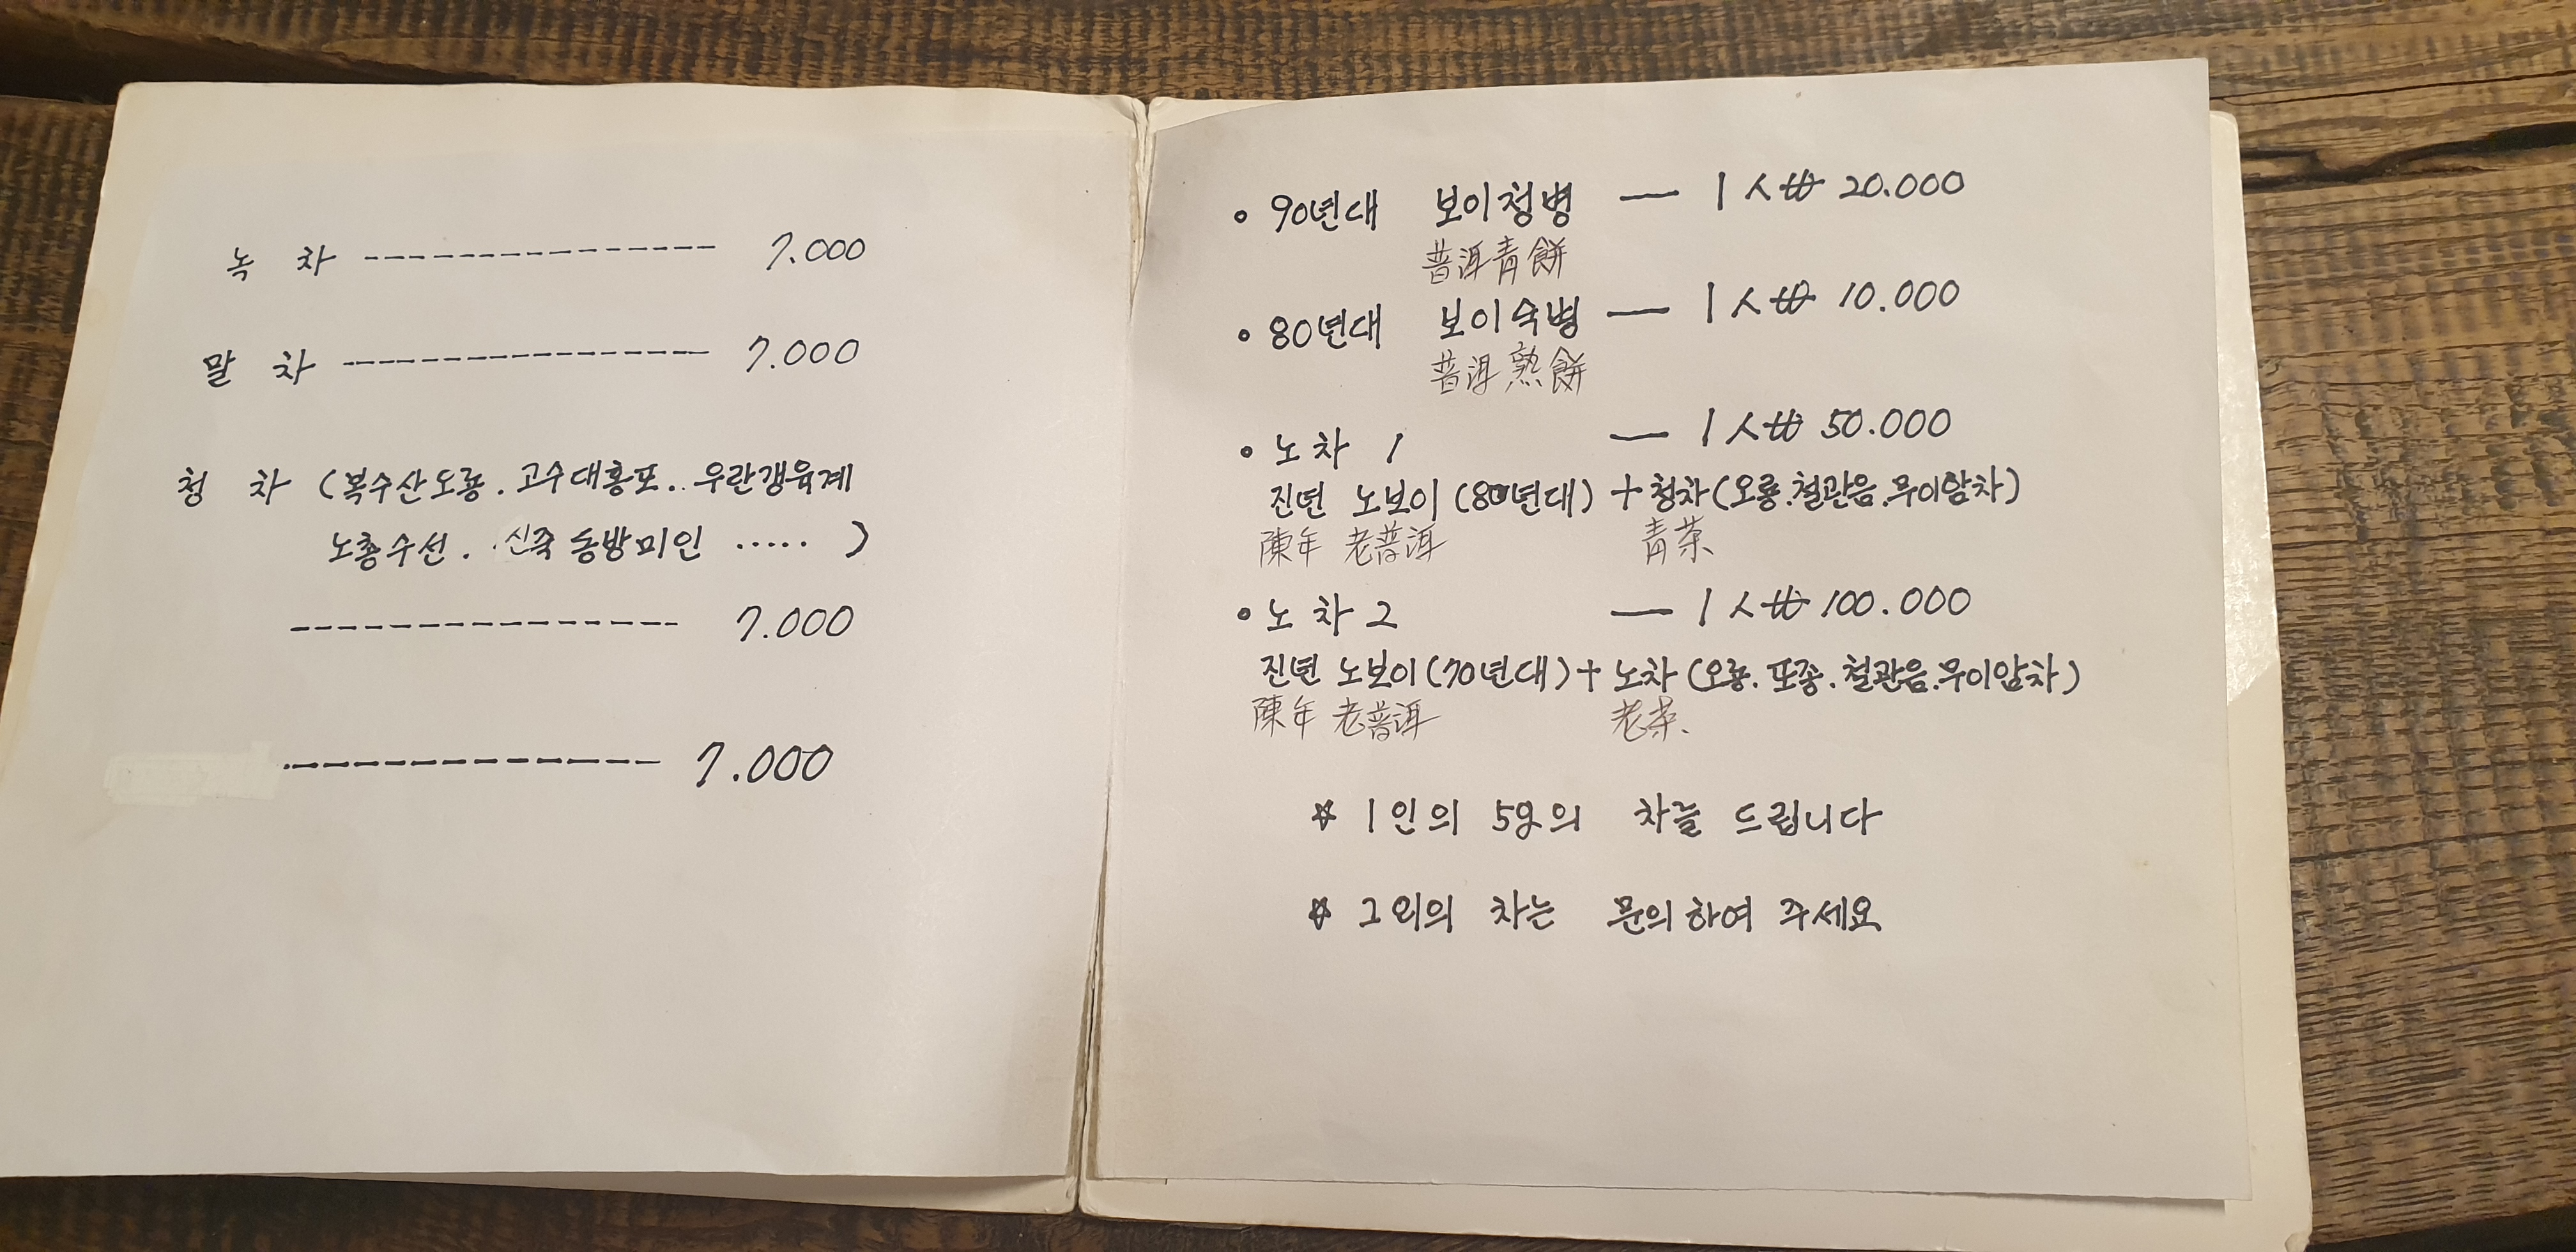 녹 차 --------------- 7.000
말 차 ---------------- 7.000
청 차 (복수산도룡. 고수대홍포.. 우란갱육계
노총수선. 신죽동방미인 ..... )
---------------- 7.000
-------------- 7.000
• 90년대 보이청병 — 1人₩ 20.000
普洱青餅
• 80년대 보이숙병 — 1人₩ 10.000
普洱熟餅
• 노차 1 — 1人₩ 50.000
진년 노보이 (80년대) + 청차(오룡.철관음.무이암차)
陳年 老普洱 青茶
• 노차 2 — 1人₩ 100.000
진년 노보이(70년대) + 노차 (오룡.포종.철관음.무이암차)
陳年 老普洱 老茶
☆ 1인의 5g의 차를 드립니다
☆ 그외의 차는 문의하여 주세요